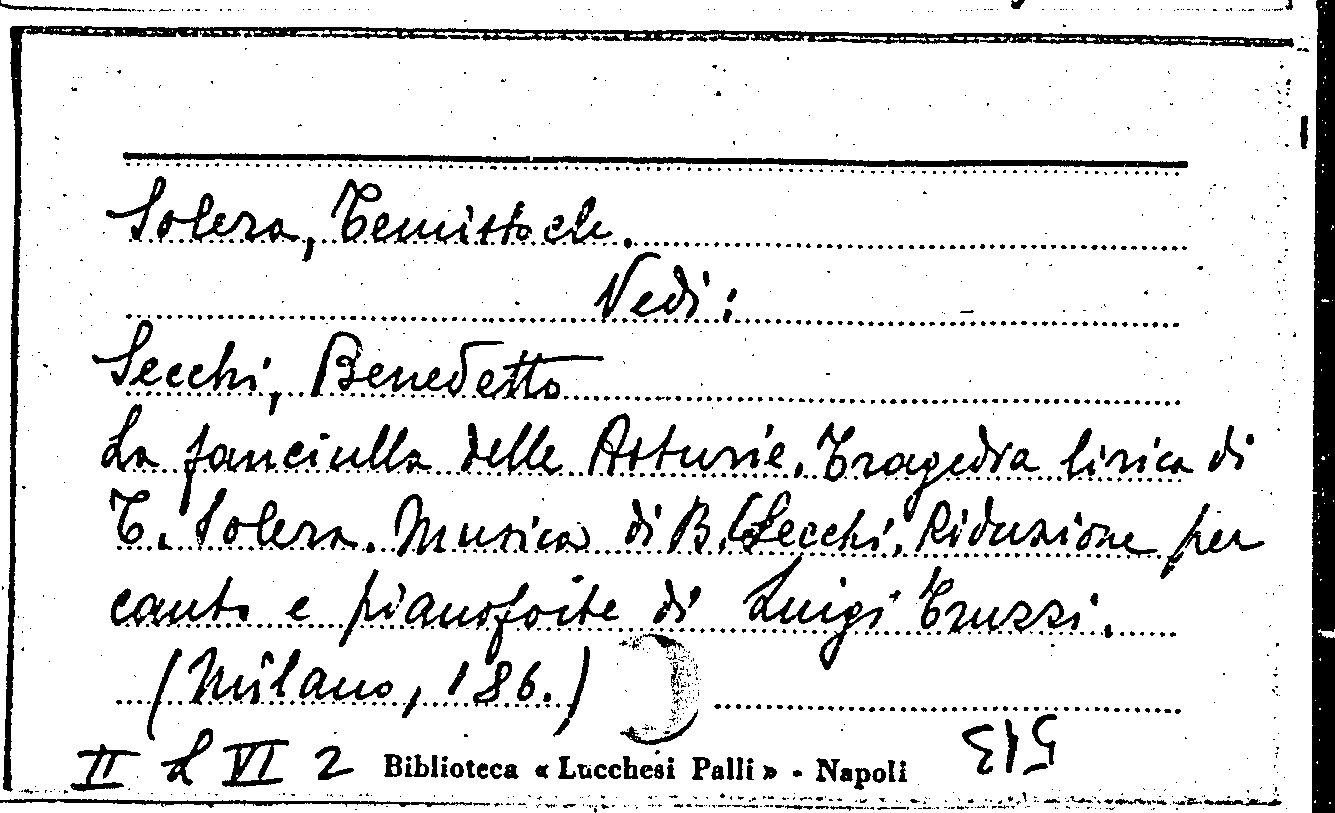 Solera, Temistocle.
Vedi:
Secchi, Benedetto
La fanciulla delle Asturie. Tragedia lirica di
T. Solera. Musica di B. Secchi. Riduzione per
canto e pianoforte di Luigi Truzzi.
(Milano, 186.)
II L VI 2 Biblioteca « Lucchesi Palli » - Napoli 513